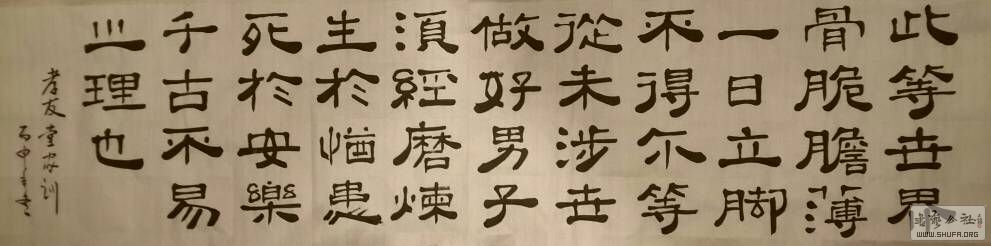 此等世界
骨脆膽薄
一日立脚
不得尔等
從未涉世
做好男子
須經磨煉
生於憂患
死於安樂
千古不易
之理也
孝友堂家训
丙申
书法公社
WWW.SHUFA.ORG